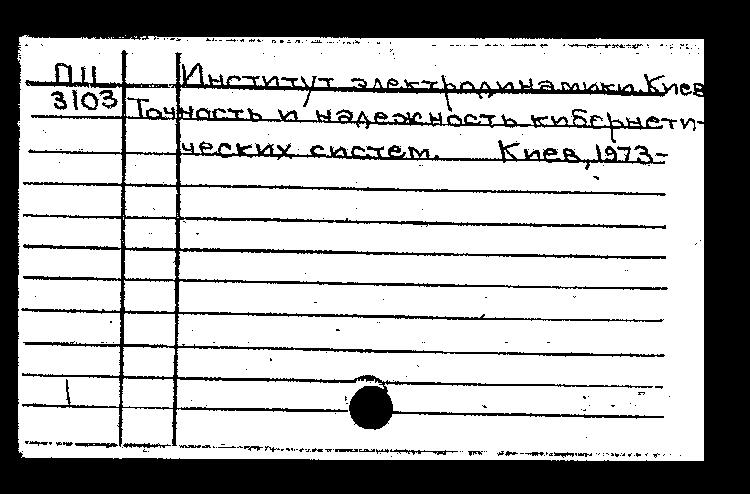 П11 Институт электродинамики. Киев
3103 Точность и надежность кибернети-
ческих систем. Киев, 1973-